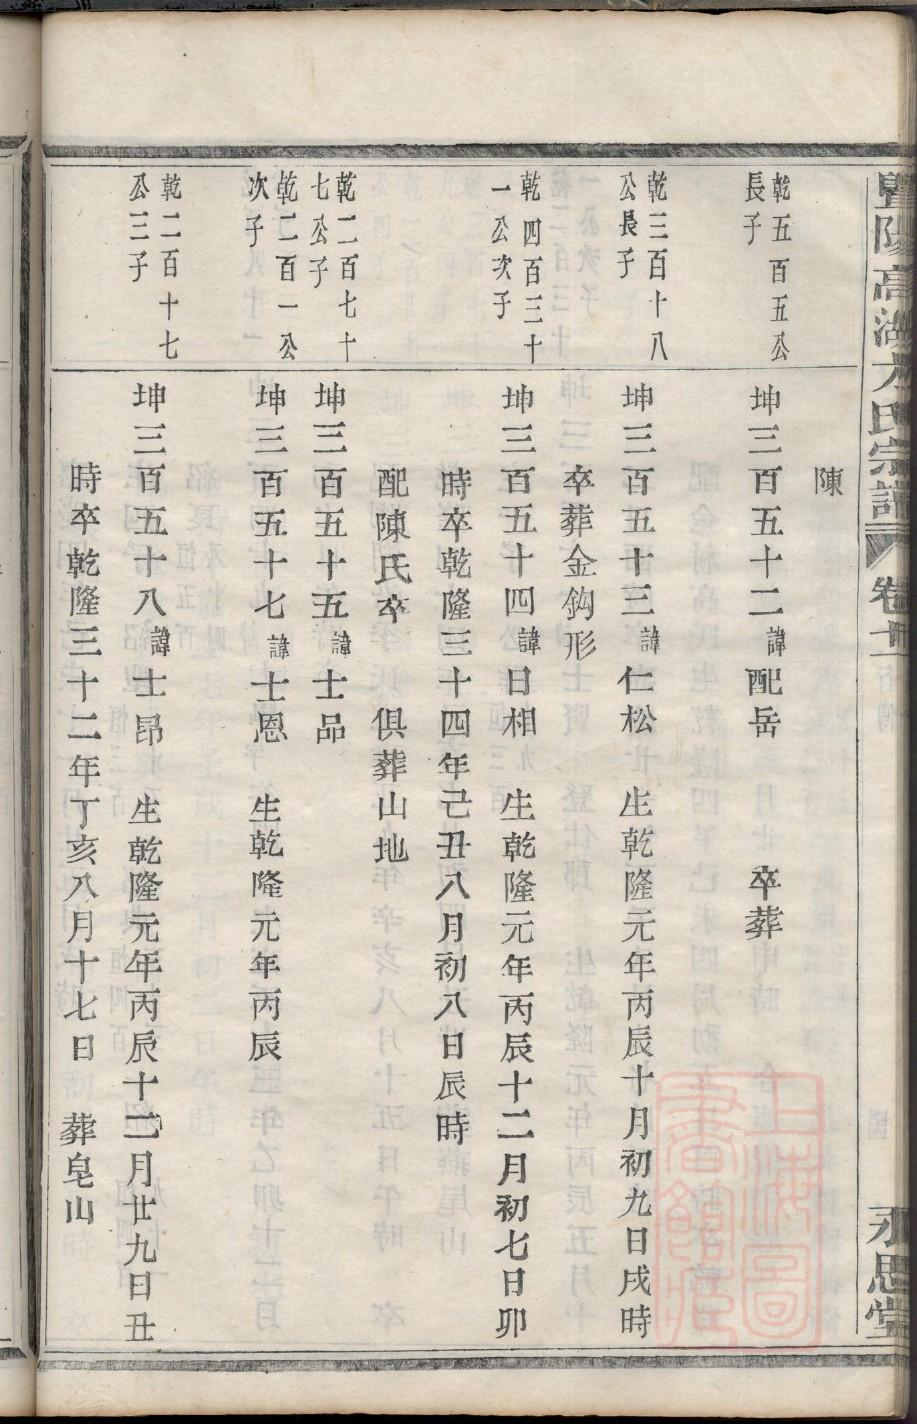 暨陽高湖
氏宗譜
卷十
永思堂
陳
乾五百五公
長子
坤三百五十二諱配岳 卒葬
乾三百十八
公長子
坤三百五十三諱仁松 生乾隆元年丙辰十月初九日戌時
卒葬金鈎形
乾四百三十
一公次子
坤三百五十四諱日相 生乾隆元年丙辰十二月初七日卯
時卒乾隆三十四年己丑八月初八日辰時
配陳氏卒 俱葬山地
乾二百七十
七公子
坤三百五十五諱士品
乾二百一公
次子
坤三百五十七諱士恩 生乾隆元年丙辰
乾二百十七
公三子
坤三百五十八諱士昂 生乾隆元年丙辰十二月廿九日丑
時卒乾隆三十二年丁亥八月十七日 葬皂山